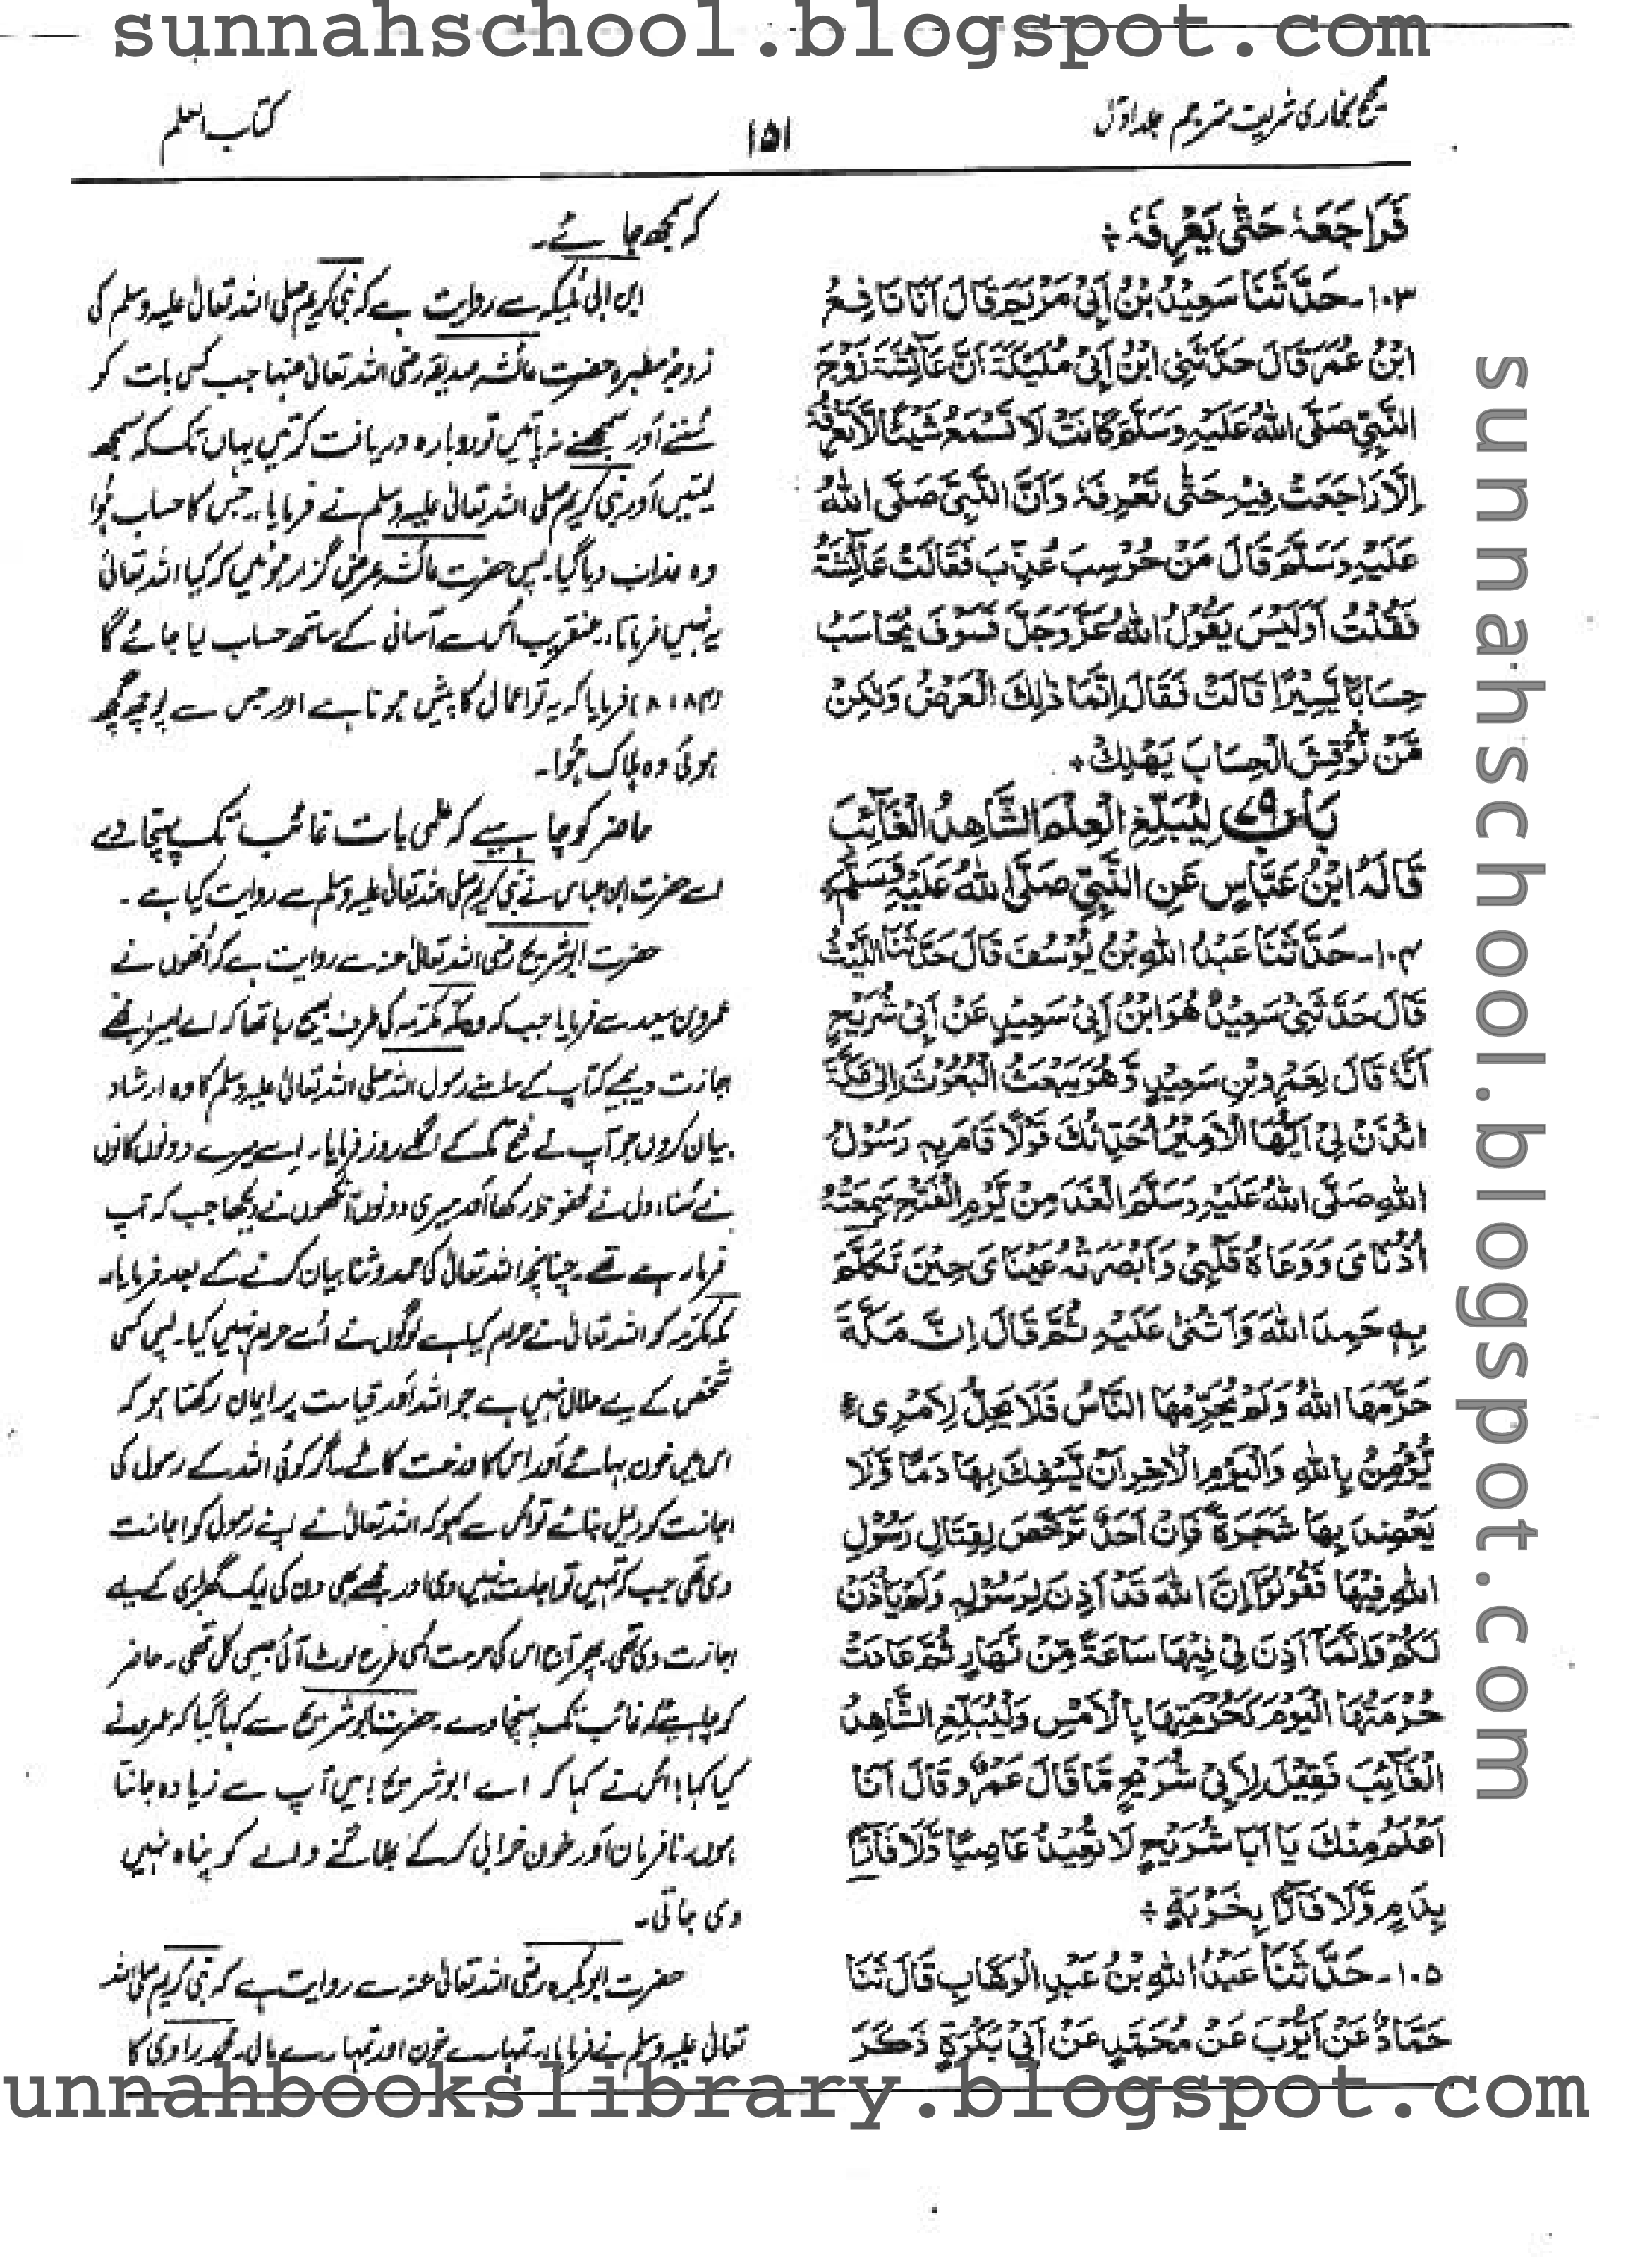 sunnahschool.blogspot.com
صحیح بخاری شریف مترجم جلد اوّل
۱۵۱
کتاب العلم
فَرَاجَعَهٗ حَتّٰى يَعْرِفَهٗ ÷
۱۰۳- حَدَّثَنَا سَعِيْدُ بْنُ اَبِىْ مَرْيَمَ قَالَ اَنَا نَافِعُ
ابْنُ عُمَرَ قَالَ حَدَّثَنِى ابْنُ اَبِىْ مُلَيْكَةَ اَنَّ عَآئِشَةَ زَوْجَ
النَّبِىِّ صَلَّى اللهُ عَلَيْهِ وَسَلَّمَ كَانَتْ لَا تَسْمَعُ شَيْئًا لَّا تَعْرِفُهٗ
اِلَّا رَاجَعَتْ فِيْهِ حَتّٰى تَعْرِفَهٗ وَاَنَّ النَّبِىَّ صَلَّى اللهُ
عَلَيْهِ وَسَلَّمَ قَالَ مَنْ حُوْسِبَ عُذِّبَ فَقَالَتْ عَآئِشَةُ
فَقُلْتُ اَوَلَيْسَ يَقُوْلُ اللهُ عَزَّوَجَلَّ فَسَوْفَ يُحَاسَبُ
حِسَابًا يَّسِيْرًا قَالَتْ فَقَالَ اِنَّمَا ذٰلِكَ الْعَرْضُ وَلٰكِنْ
مَّنْ نُّوْقِشَ الْحِسَابَ يَهْلِكْ ÷
بَابٌ ۷۹ لِيُبَلِّغِ الْعِلْمَ الشَّاهِدُ الْغَآئِبَ
قَالَهُ ابْنُ عَبَّاسٍ عَنِ النَّبِىِّ صَلَّى اللهُ عَلَيْهِ وَسَلَّمَ
۱۰۴- حَدَّثَنَا عَبْدُ اللهِ بْنُ يُوْسُفَ قَالَ حَدَّثَنَا اللَّيْثُ
قَالَ حَدَّثَنِىْ سَعِيْدٌ هُوَ ابْنُ اَبِىْ سَعِيْدٍ عَنْ اَبِىْ شُرَيْحٍ
اَنَّهٗ قَالَ لِعَمْرِو بْنِ سَعِيْدٍ وَّهُوَ يَبْعَثُ الْبُعُوْثَ اِلٰى مَكَّةَ
ائْذَنْ لِىْ اَيُّهَا الْاَمِيْرُ اُحَدِّثْكَ قَوْلًا قَامَ بِهٖ رَسُوْلُ
اللهِ صَلَّى اللهُ عَلَيْهِ وَسَلَّمَ الْغَدَ مِنْ يَّوْمِ الْفَتْحِ سَمِعَتْهُ
اُذُنَاىَ وَوَعَاهُ قَلْبِىْ وَاَبْصَرَتْهُ عَيْنَاىَ حِيْنَ تَكَلَّمَ
بِهٖ حَمِدَ اللهَ وَاَثْنٰى عَلَيْهِ ثُمَّ قَالَ اِنَّ مَكَّةَ
حَرَّمَهَا اللهُ وَلَمْ يُحَرِّمْهَا النَّاسُ فَلَا يَحِلُّ لِاِمْرِىءٍ
يُّؤْمِنُ بِاللهِ وَالْيَوْمِ الْاٰخِرِ اَنْ يَّسْفِكَ بِهَا دَمًا وَّلَا
يَعْضِدَ بِهَا شَجَرَةً فَاِنْ اَحَدٌ تَرَخَّصَ لِقِتَالِ رَسُوْلِ
اللهِ فِيْهَا فَقُوْلُوْا اِنَّ اللهَ قَدْ اَذِنَ لِرَسُوْلِهٖ وَلَمْ يَاْذَنْ
لَكُمْ وَاِنَّمَا اَذِنَ لِىْ فِيْهَا سَاعَةً مِّنْ نَّهَارٍ ثُمَّ عَادَتْ
حُرْمَتُهَا الْيَوْمَ كَحُرْمَتِهَا بِالْاَمْسِ وَلْيُبَلِّغِ الشَّاهِدُ
الْغَآئِبَ فَقِيْلَ لِاَبِىْ شُرَيْحٍ مَّا قَالَ عَمْرٌو قَالَ اَنَا
اَعْلَمُ مِنْكَ يَا اَبَا شُرَيْحٍ لَا تُعِيْذُ عَاصِيًا وَّلَا فَآرًّا
بِدَمٍ وَّلَا فَآرًّا بِخَرْبَةٍ ÷
۱۰۵- حَدَّثَنَا عَبْدُ اللهِ بْنُ عَبْدِ الْوَهَّابِ قَالَ ثَنَا
حَمَّادٌ عَنْ اَيُّوْبَ عَنْ مُحَمَّدٍ عَنْ اَبِىْ بَكْرَةَ ذَكَرَ
کہ سمجھ جائے۔
ابن ابی ملیکہ سے روایت ہے کہ نبی کریم صلی اللہ تعالیٰ علیہ وسلم کی
زوجۂ مطہرہ حضرت عائشہ صدیقہ رضی اللہ تعالیٰ عنہا جب کسی بات کو
سُنتے اَور سمجھنے نہ پاتیں تو دوبارہ دریافت کرتیں یہاں تک کہ سمجھ
لیتیں اَور نبی کریم صلی اللہ تعالیٰ علیہ وسلم نے فرمایا۔ جس کا حساب ہُوا
وہ عذاب دیا گیا۔ پس حضرت عائشہ عرض گزار ہوئیں کہ کیا اللہ تعالیٰ
یہ نہیں فرماتا۔ عنقریب اُس سے آسانی کے ساتھ حساب لیا جائے گا
(۸:۸۴) فرمایا کہ یہ تو اعمال کا پیش ہونا ہے اور جس سے پوچھ گچھ
ہوئی وہ ہلاک ہُوا۔
حاضر کو چاہیے کہ علمی بات غائب تک پہنچا دے
اسے حضرت ابن عباس نے نبی کریم صلی اللہ تعالیٰ علیہ وسلم سے روایت کیا ہے۔
حضرت ابو شریح رضی اللہ تعالیٰ عنہ سے روایت ہے کہ اُنھوں نے
عمرو بن سعید سے فرمایا جب کہ وہ مکہ مکرمہ کی طرف بھیج رہا تھا کہ اے امیر! مجھے
اجازت دیجیے کہ آپ کے سامنے رسول اللہ صلی اللہ تعالیٰ علیہ وسلم کا وہ ارشاد
بیان کروں جو آپ نے فتح مکہ کے اگلے روز فرمایا۔ اسے میرے دونوں کانوں
نے سُنا، دل نے محفوظ رکھا اَور میری دونوں آنکھوں نے دیکھا جب کہ آپ
فرما رہے تھے۔ چنانچہ اللہ تعالیٰ کی حمد و ثنا بیان کرنے کے بعد فرمایا۔
مکہ مکرمہ کو اللہ تعالیٰ نے حرام کیا ہے لوگوں نے اُسے حرام نہیں کیا۔ پس کسی
شخص کے لیے حلال نہیں ہے جو اللہ اَور قیامت پر ایمان رکھتا ہو کہ
اس میں خون بہائے اَور اس کا درخت کاٹے۔ اگر کوئی اللہ کے رسول کی
اجازت کو دلیل بنائے تو اُس سے کہو کہ اللہ تعالیٰ نے اپنے رسول کو اجازت
دی تھی جب کہ تمہیں تو اجازت نہیں دی اور مجھے بھی دن کی ایک گھڑی کے لیے
اجازت دی تھی۔ پھر آج اس کی حرمت اُسی طرح لوٹ آئی جیسی کل تھی۔ حاضر
کو چاہیے کہ غائب تک پہنچا دے۔ حضرت ابو شریح سے کہا گیا کہ عمرو نے
کیا کہا؟ اُس نے کہا کہ اے ابو شریح! میں آپ سے زیادہ جانتا
ہوں۔ نافرمان اَور خون خرابی کر کے بھاگنے والے کو پناہ نہیں
دی جاتی۔
حضرت ابوبکرہ رضی اللہ تعالیٰ عنہ سے روایت ہے کہ نبی کریم صلی اللہ
تعالیٰ علیہ وسلم نے فرمایا۔ تمہارے خون اور تمہارے مال۔ محمد راوی کا
sunnahschool.blogspot.com
unnahbookslibrary.blogspot.com